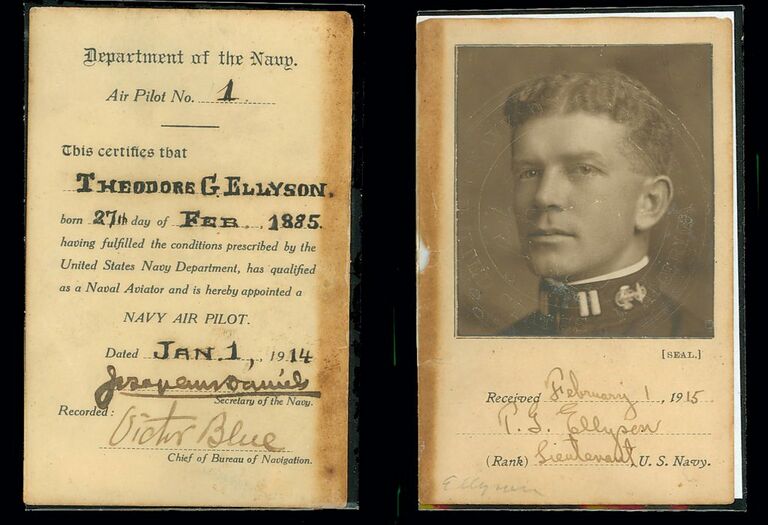 Department of the Navy.
Air Pilot No. 1
This certifies that
THEODORE G. ELLYSON.
born 27th day of FEB. 1885.
having fulfilled the conditions prescribed by the
United States Navy Department, has qualified
as a Naval Aviator and is hereby appointed a
NAVY AIR PILOT.
Dated JAN. 1, 1914
Josephus Daniels
Secretary of the Navy.
Recorded:
Victor Blue
Chief of Bureau of Navigation.
[SEAL.]
Received February 1, 1915
T. G. Ellyson
(Rank) Lieutenant, U. S. Navy.
Ellyson